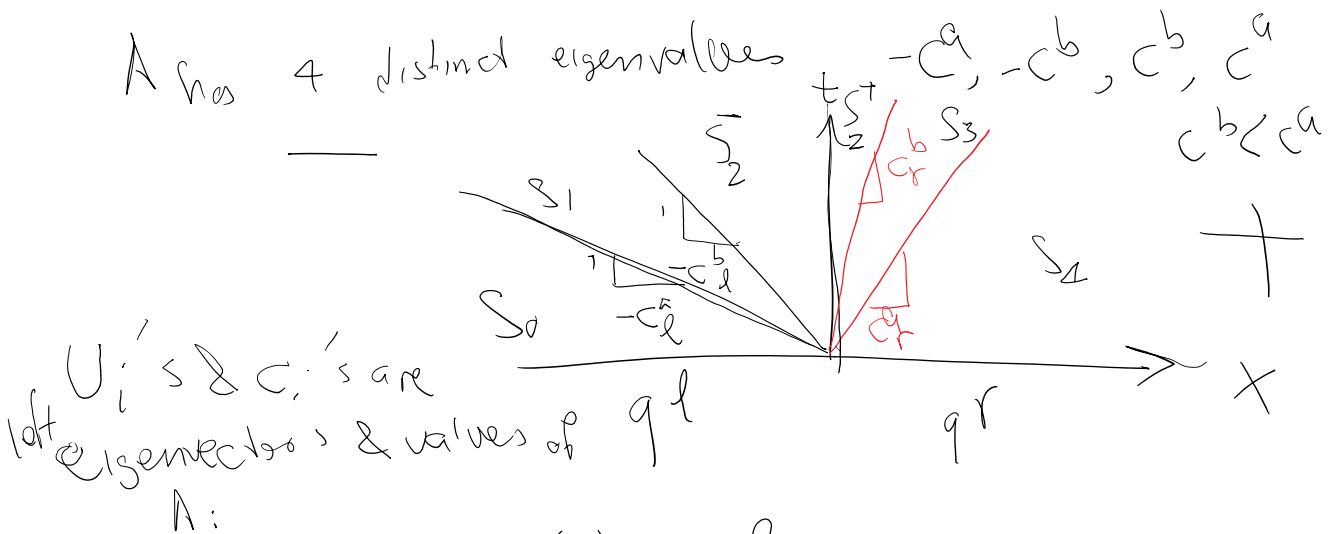 A has 4 distinct eigenvalues -c^a, -c^b, c^b, c^a
c^b < c^a
t
S_2^-
S_2^+
S_3
S_1
c_r^b
1
-c_l^b
1
-c_l^a
c_r^a
S_0
S_4
x
U_i's & c_i's are
left eigenvectors & values of
A:
q^l
q^r